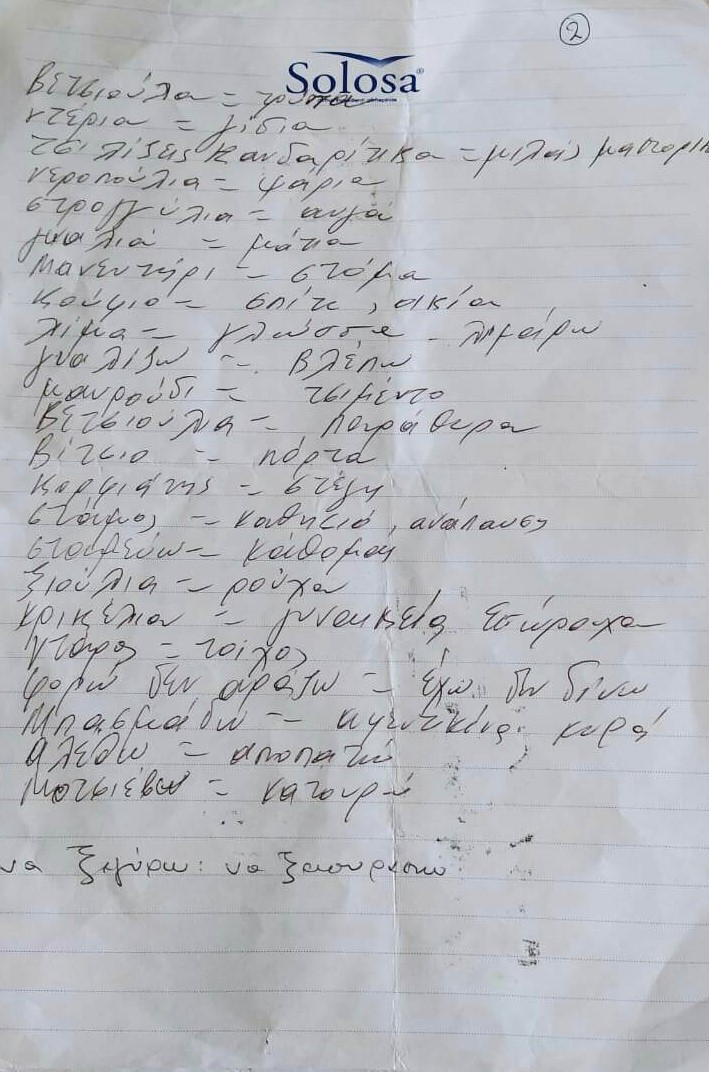 2
Solosa
Βετσιούλα = τρύπα
ντέρια = γίδια
τσιλίζεις κανδαρίτικα = μιλάς μαστορικ
νεροπούλια = ψάρια
στρογγύλια = αυγά
γυαλιά = μάτια
Μανευτήρι = στόμα
κούφιο = σπίτι, οικία
λίμα = γλώσσα - λιμάρω
γυαλίζω = βλέπω
μαυρούδι = τσιμέντο
Βετσιούλια = παράθυρα
Βίτσιο = πόρτα
κορφιάτης = στέγη
στάμος = καθησιό, ανάπαυση
σταμεύω = κάθομαι
ξιούλια = ρούχα
κρικέλια = γυναικεία εσώρουχα
ντάρος = τοίχος
φορώ δεν αράζω = έχω δεν δίνω
Μπασμαδω = κυρά
αλέθω = αποπατώ
Μοτσιεύω = κατουρώ
να ξεγύρω: να ξαπου